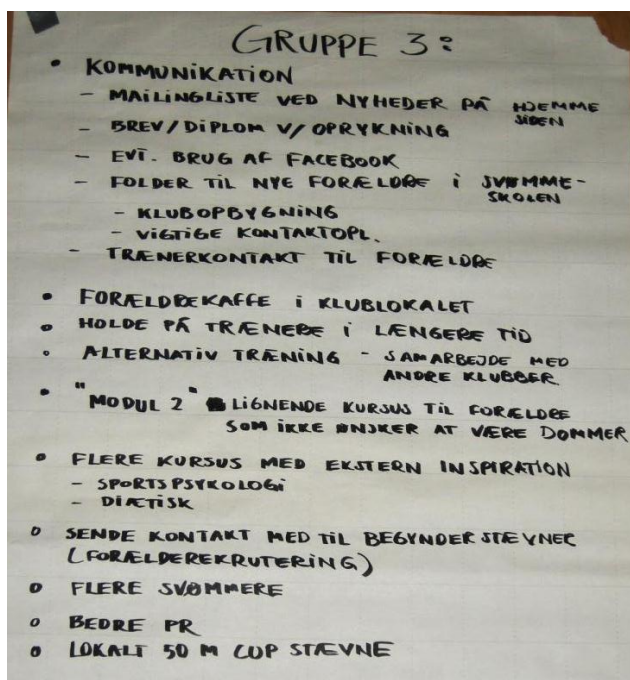 GRUPPE 3:
• KOMMUNIKATION
- MAILINGLISTE VED NYHEDER PÅ HJEMME
SIDEN
- BREV/DIPLOM V/ OPRYKNING
- EVT. BRUG AF FACEBOOK
- FOLDER TIL NYE FORÆLDRE I SVØMME-
SKOLEN
- KLUBOPBYGNING
- VIGTIGE KONTAKTOPL.
- TRÆNERKONTAKT TIL FORÆLDRE
• FORÆLDREKAFFE I KLUBLOKALET
• HOLDE PÅ TRÆNERE I LÆNGERE TID
• ALTERNATIV TRÆNING - SAMARBEJDE MED
ANDRE KLUBBER.
• "MODUL 2" LIGNENDE KURSUS TIL FORÆLDRE
SOM IKKE ØNSKER AT VÆRE DOMMER
• FLERE KURSUS MED EKSTERN INSPIRATION
- SPORTSPSYKOLOGI
- DIÆTISK
• SENDE KONTAKT MED TIL BEGYNDERSTÆVNER
(FORÆLDEREKRUTERING)
• FLERE SVØMMERE
• BEDRE PR
• LOKALT 50 M CUP STÆVNE